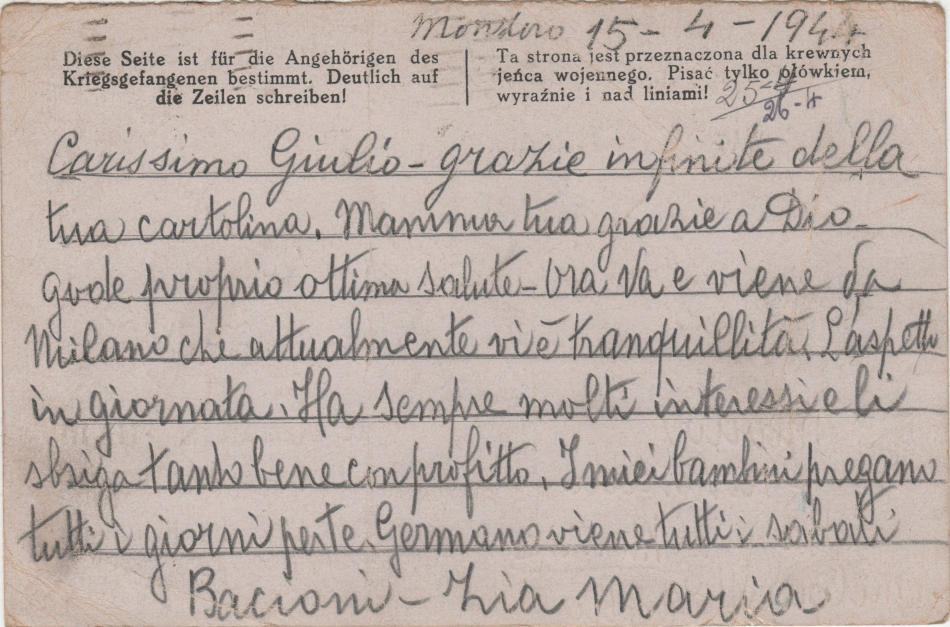 15-4-1944
Diese Seite ist für die Angehörigen des
Kriegsgefangenen bestimmt. Deutlich auf
die Zeilen schreiben!
Ta strona jest przeznaczona dla krewnych
jeńca wojennego. Pisać tylko ołówkiem,
wyraźnie i nad liniami!
25-4
26-4
Carissimo Giulio - grazie infinite della
tua cartolina. Mamma tua grazie a Dio
gode proprio ottima salute - Ora va e viene da
Milano che attualmente vi è tranquillità. L'aspetto
in giornata. Ha sempre molti interessi e li
sbriga tanto bene con profitto. I miei bambini pregano
tutti i giorni per te. Germano viene tutti i sabati
Bacioni - Zia Maria